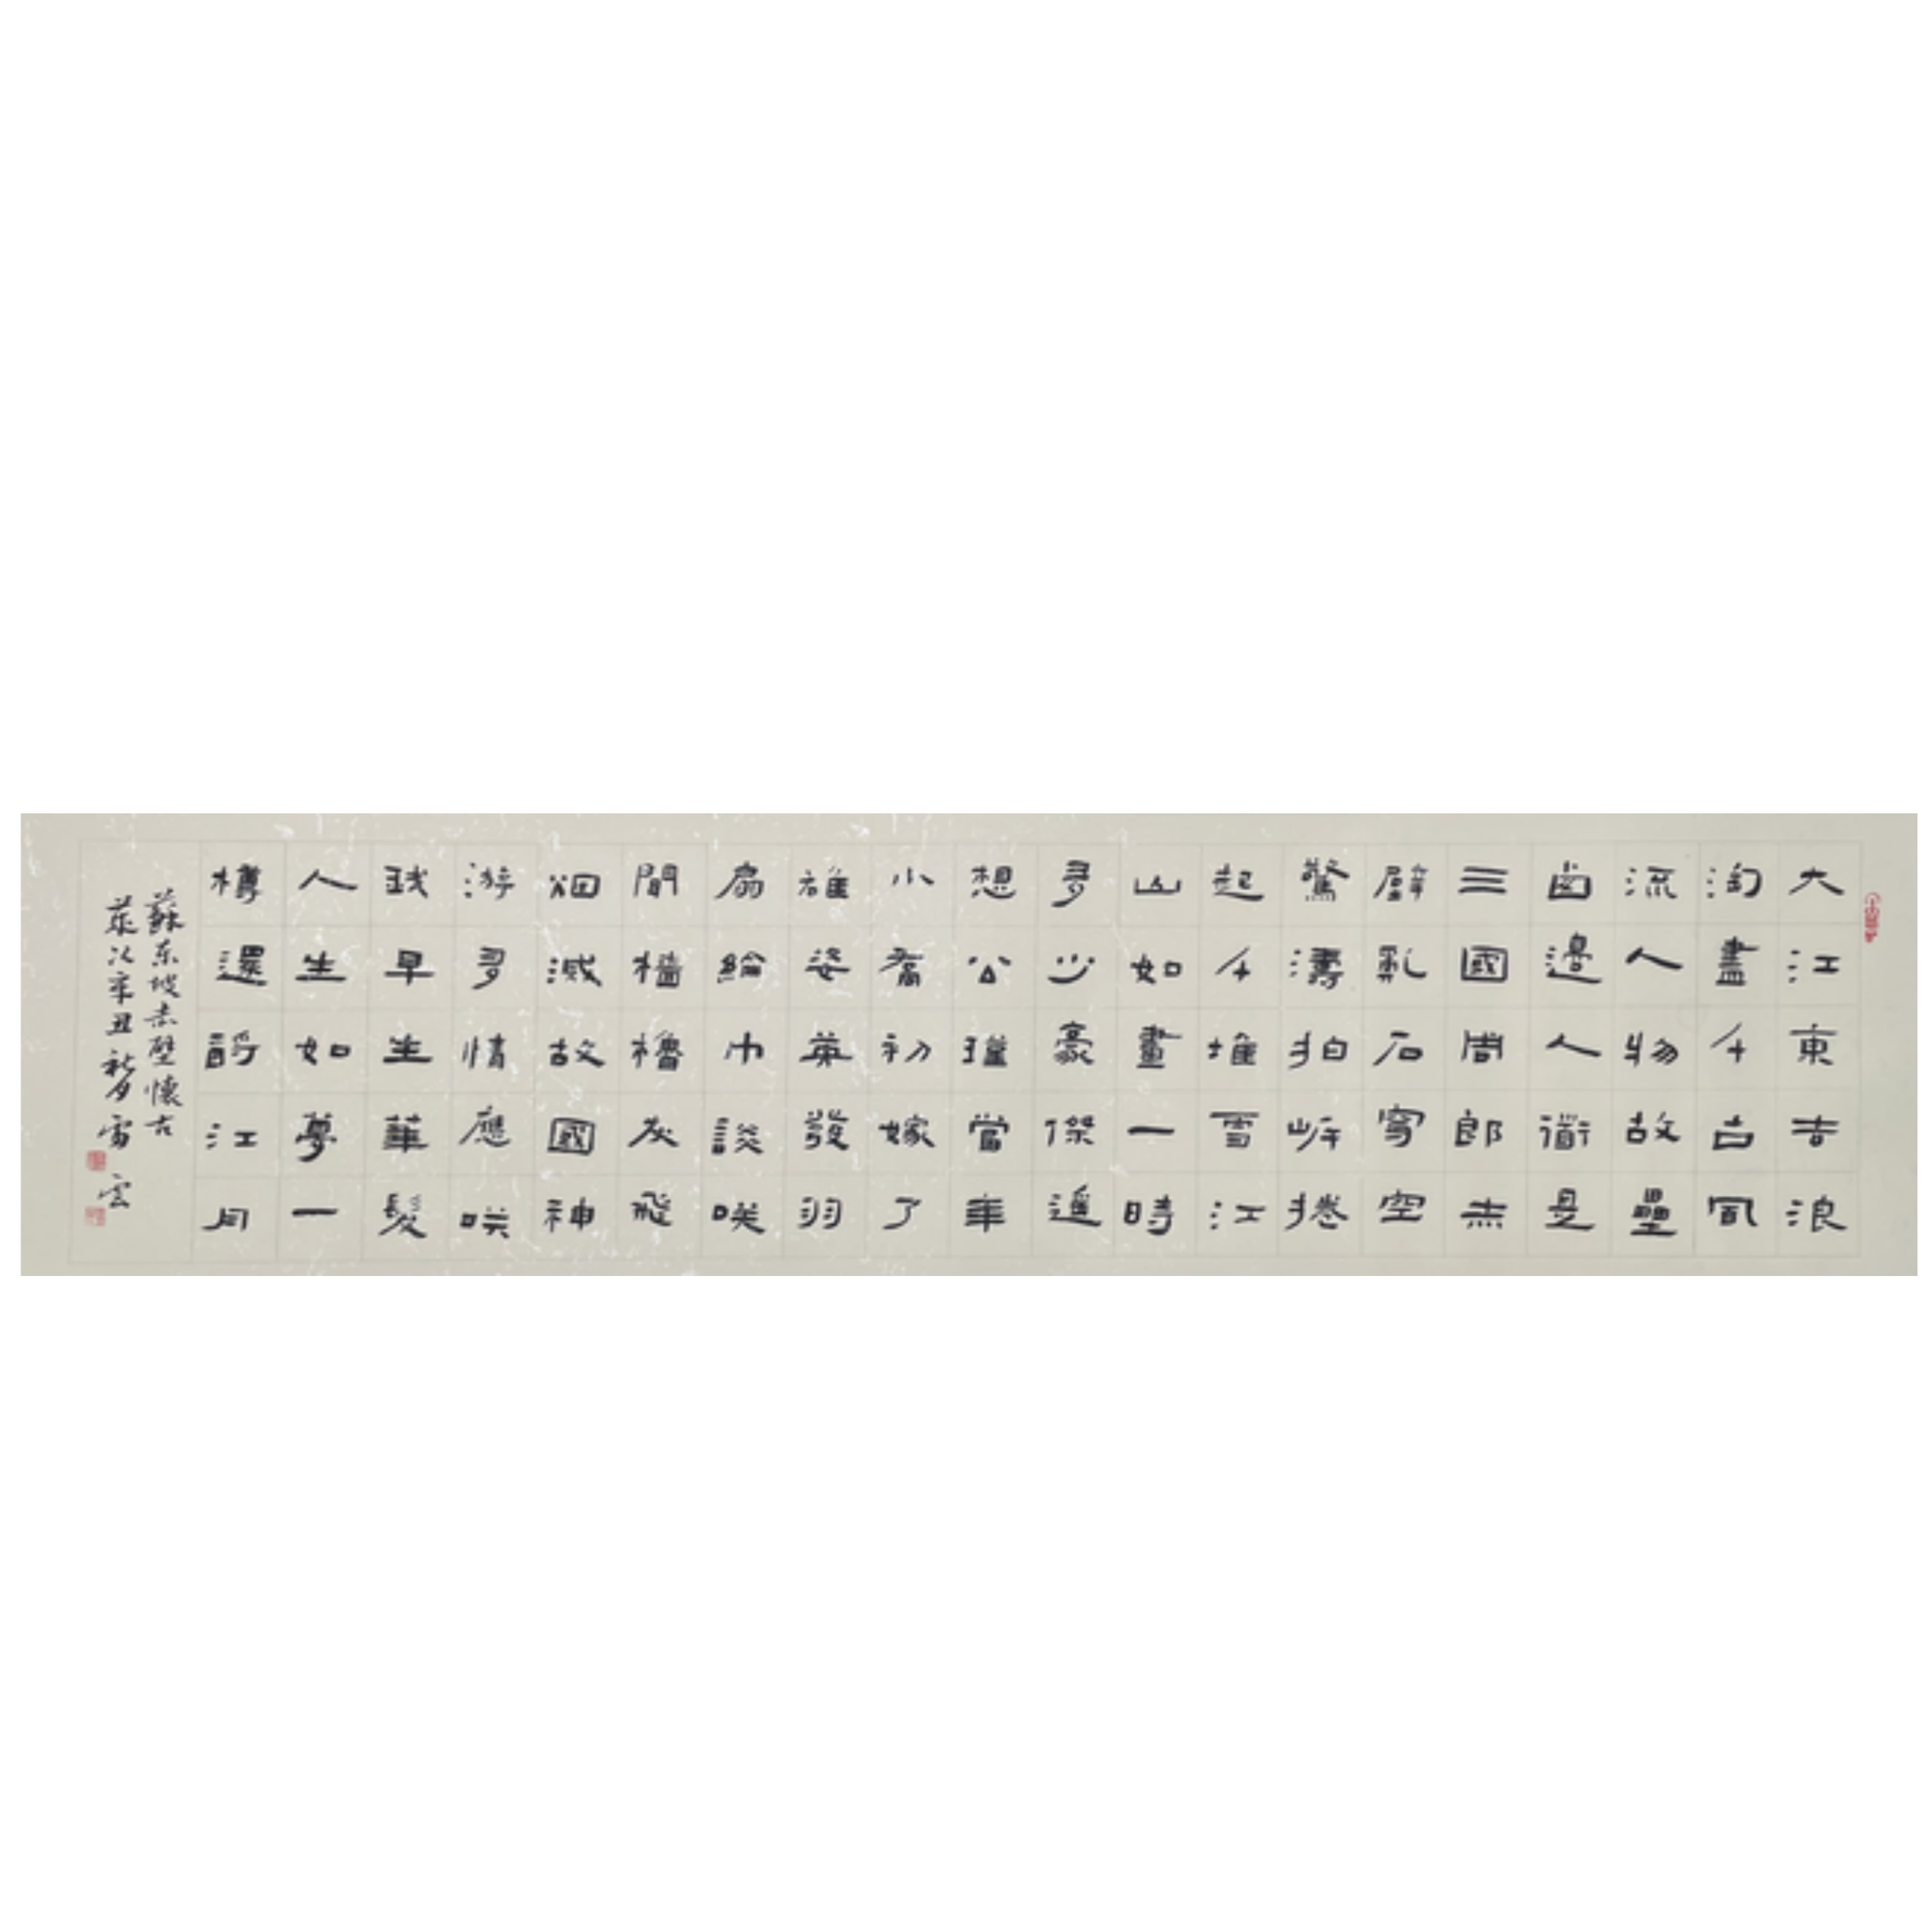 大江東去浪
淘盡千古風
流人物故壘
西邊人道是
三國周郎赤
壁亂石穿空
驚濤拍岸捲
起千堆雪江
山如畫一時
多少豪傑遥
想公瑾當年
小喬初嫁了
雄姿英發羽
扇綸巾談笑
間檣櫓灰飛
烟滅故國神
游多情應笑
我早生華髮
人生如夢一
樽還酹江月
蘇东坡赤壁懷古
歲次辛丑